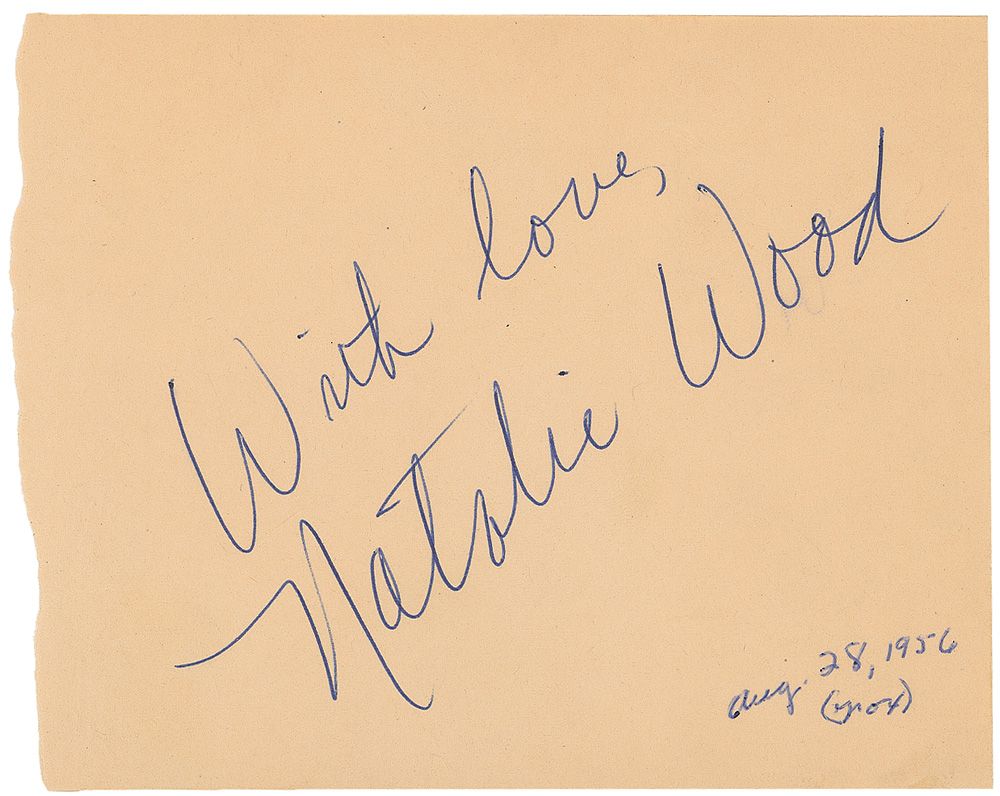 With love,
Natalie Wood
Aug. 28, 1956